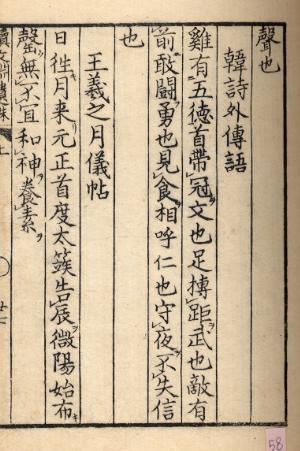 聲也
韓詩外傳語
雞有五德首帶冠文也足搏距武也敵有
前敢鬪勇也見食相呼仁也守夜不失信
也
王羲之月儀帖
日往月来元正首度太簇告辰微陽始布
罄無不宜和神養素
上
58